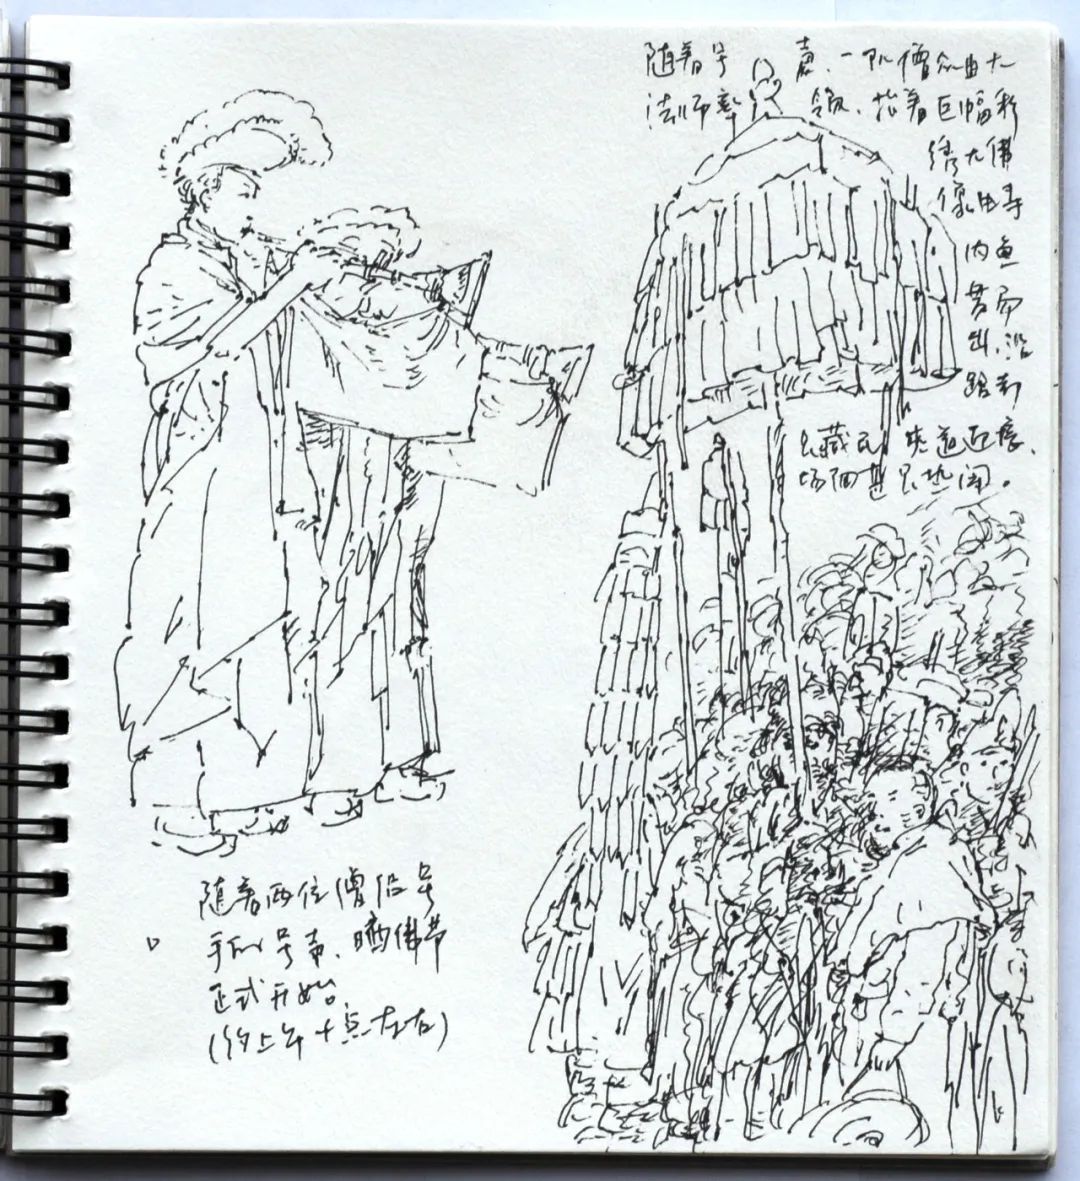 随着号声、一队僧众由大
法师率领、抬着巨幅彩
绣大佛
像由寺
内鱼
贯而
出、沿
路
藏民夹道迎接、
场面甚是热闹。
随着两位僧侣号
手的号声、晒佛节
正式开始
(约上午十点左右)